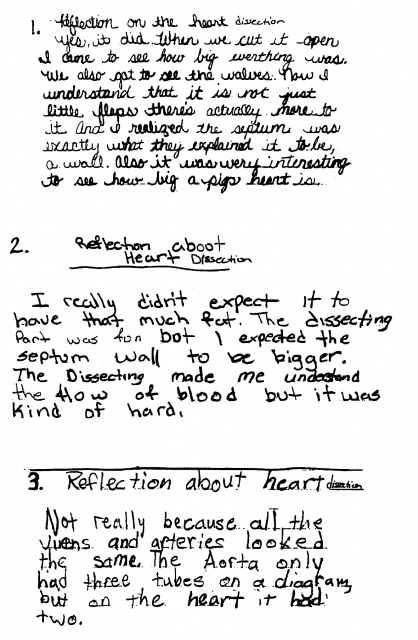 1. Reflection on the heart dissection
Yes, it did. When we cut it open
I came to see how big everthing was.
We also got to see the valves. Now I
understand that it is not just
little flaps there's actually more to
it. And I realized the septum was
exactly what they explained it to be,
a wall. Also it was very interesting
to see how big a pigs heart is.
2. Reflection aboot
Heart Dissection
I really didn't expect it to
have that much fat. The dissecting
Part was fun but I expected the
septum wall to be bigger.
The Dissecting made me understand
the flow of blood but it was
kind of hard.
3. Reflection about heart dissection
Not really because all the
viens and arteries looked
the same. The Aorta only
had three tubes on a diagram,
but on the heart it had
two.